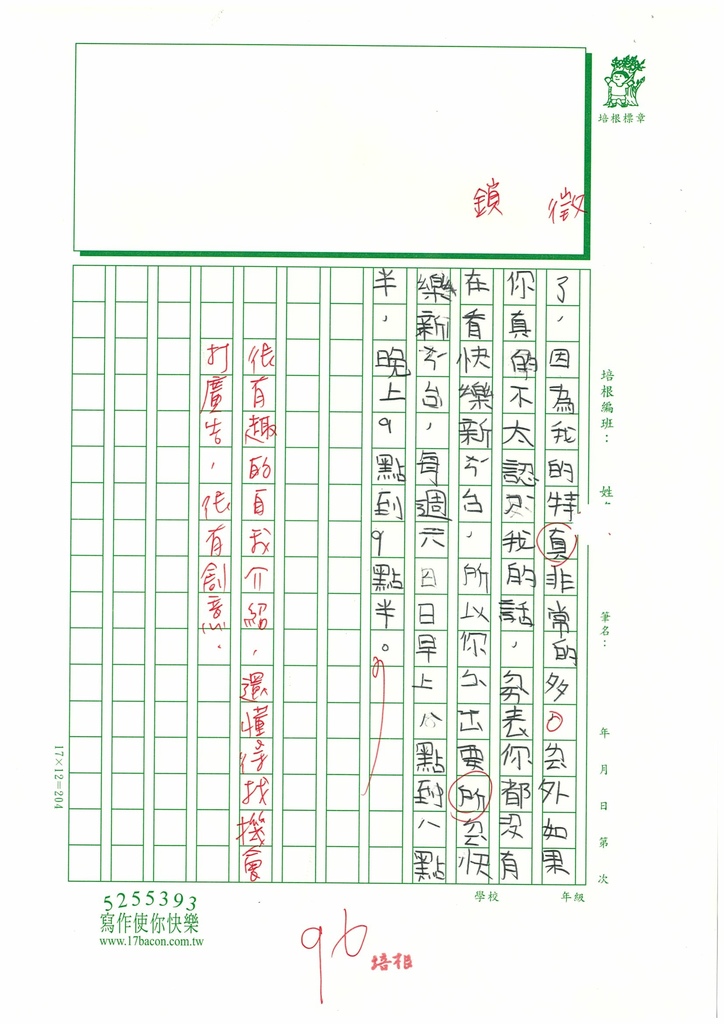 培根標章
徵
鎖
培根編班：
姓
筆名：
年 月 日 第 次
了，因為我的特真非常的多。另外如果
你真的不太認识我的話，分表你都沒有
在看快樂新分台，所以你分出要所分快
樂新分台，每週六日日早上八點到八點
半，晚上9點到9點半。
很有趣的自我介紹，還懂得找機會
打廣告，很有創意。
17×12=204
學校
年級
5255393
寫作使你快樂
www.17bacon.com.tw
96
培根